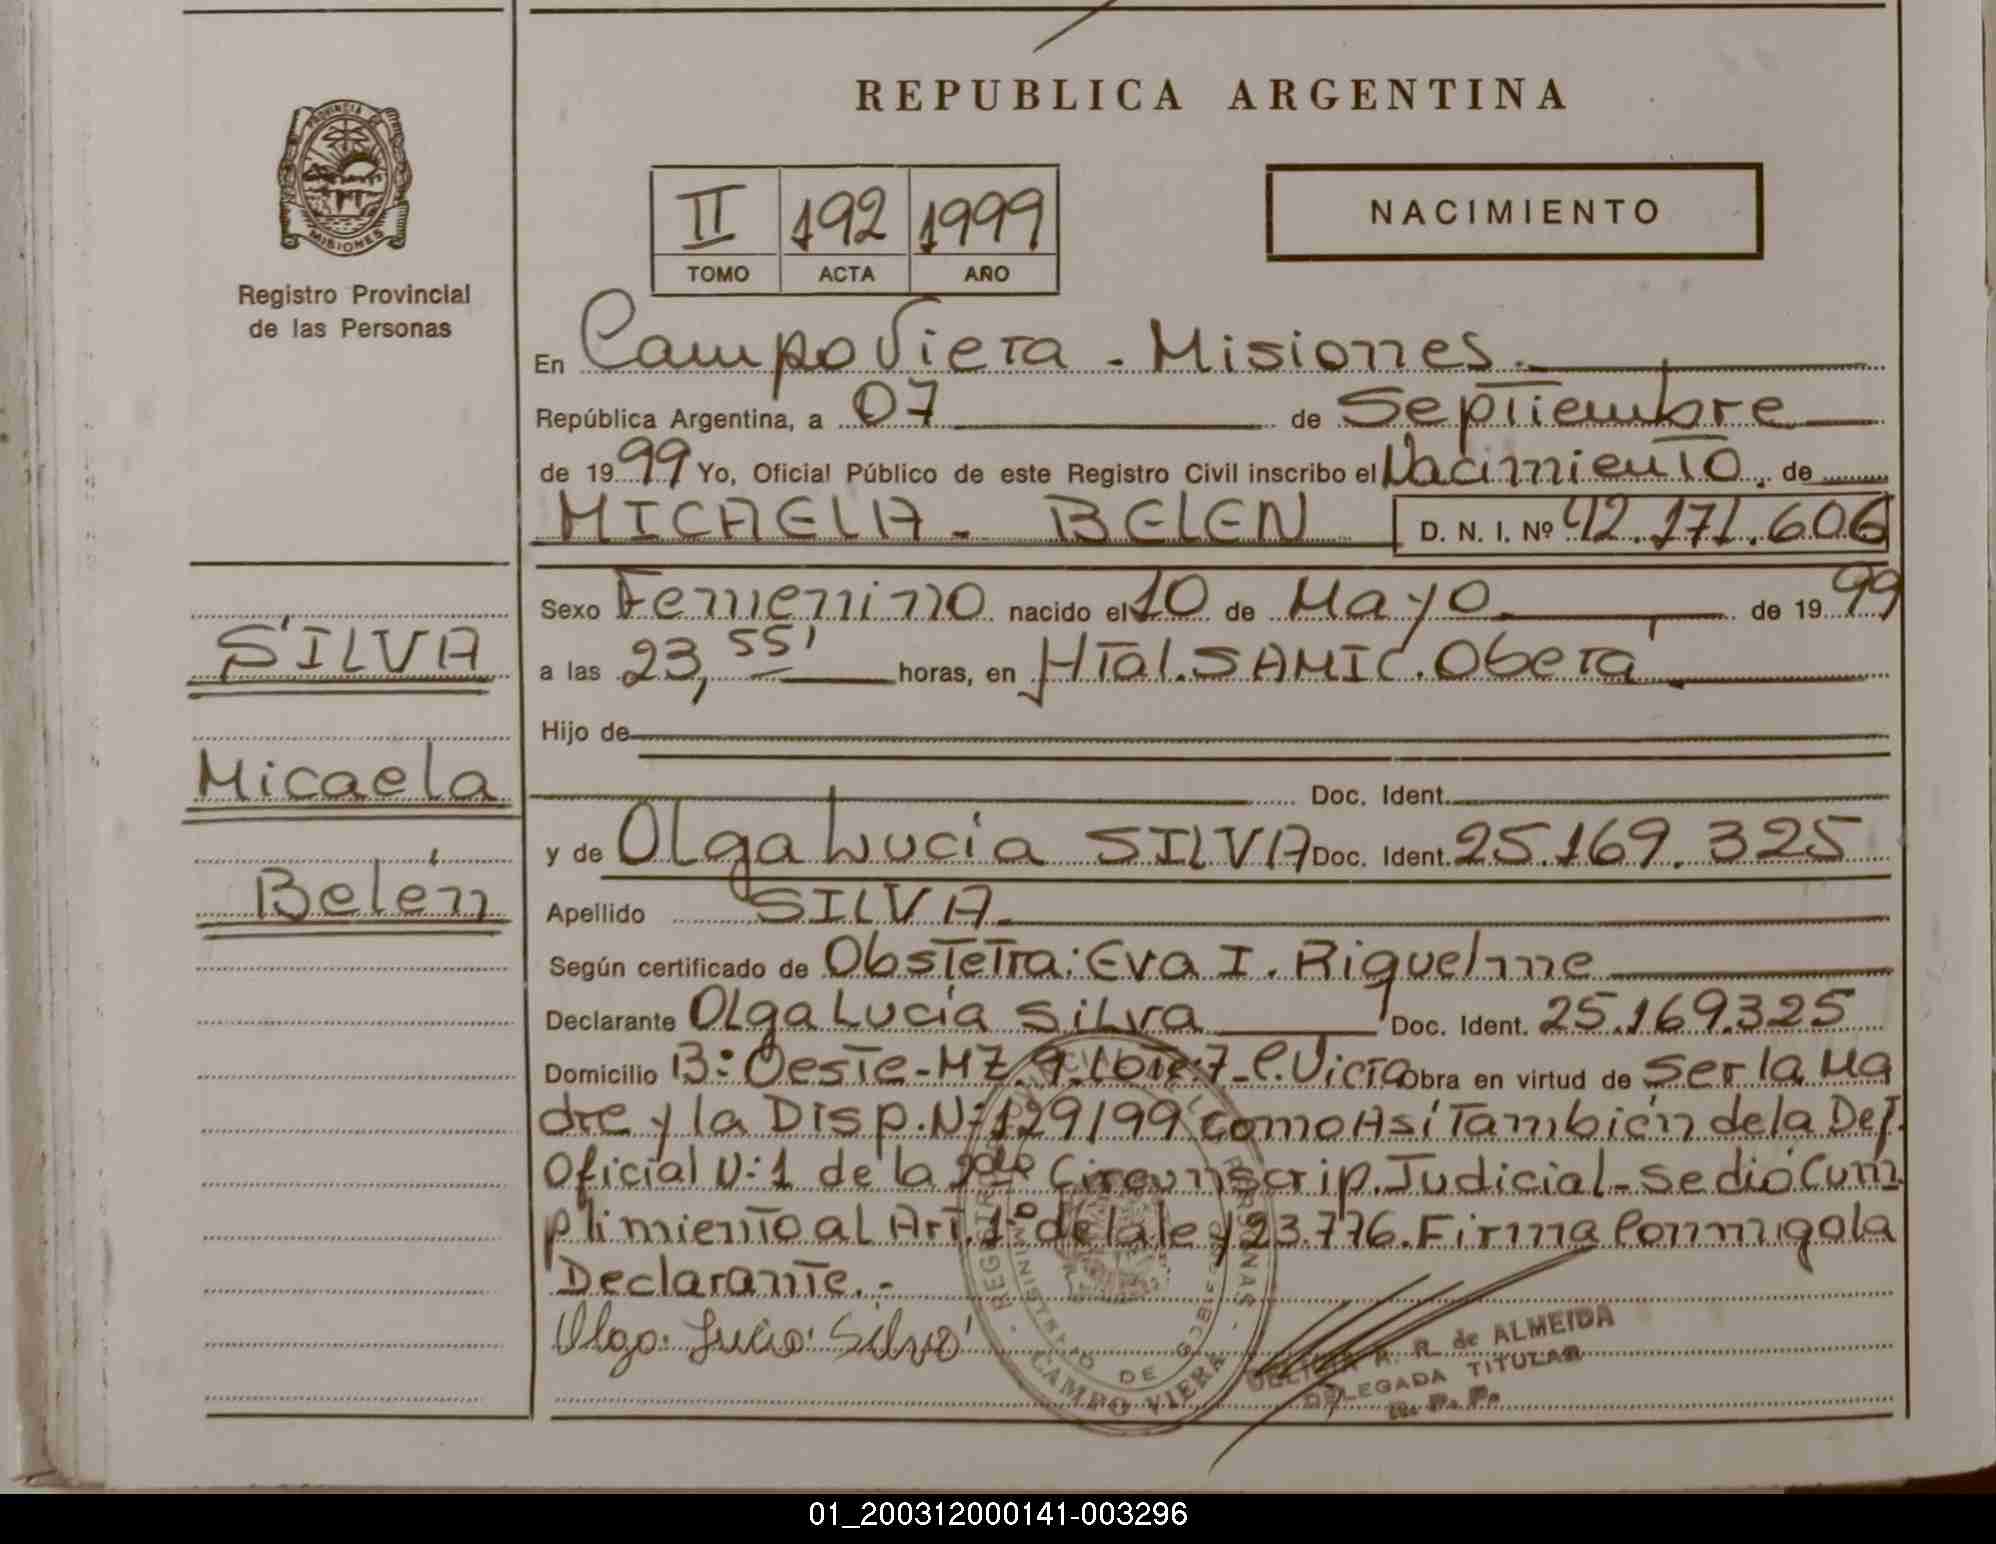 REPUBLICA ARGENTINA
PROVINCIA DE
MISIONES
Registro Provincial
de las Personas
II 192 1999
TOMO ACTA AÑO
NACIMIENTO
En Campo Viera - Misiones.
República Argentina, a 07 de Septiembre
de 1999 Yo, Oficial Público de este Registro Civil inscribo el Nacimiento, de
MICAELA - BELEN D. N. I. Nº 42.171.606
Sexo Femenino nacido el 10 de Mayo de 1999
a las 23,55' horas, en Htal. SAMIC. Oberá
Hijo de
Doc. Ident.
y de Olga Lucia SILVA Doc. Ident. 25.169.325
Apellido SILVA
Según certificado de Obstetra: Eva I. Riquelme
Declarante Olga Lucía Silva Doc. Ident. 25.169.325
Domicilio B: Oeste - MZ. 9. Lote: 7 - C. Victo Obra en virtud de ser la Ma
dre y la Disp. N: 129/99 como Así También de la Def.
Oficial N: 1 de la 2da Circunscrip. Judicial - se dió Cum
plimiento al Art. 1º de la ley 23.776. Firma Conmigo la
Declarante. -
Olga Lucia Silva
SILVA
Micaela
Belén
CAMPO VIERA
R. de ALMEIDA
DELEGADA TITULAR
R. P. P.
01_200312000141-003296